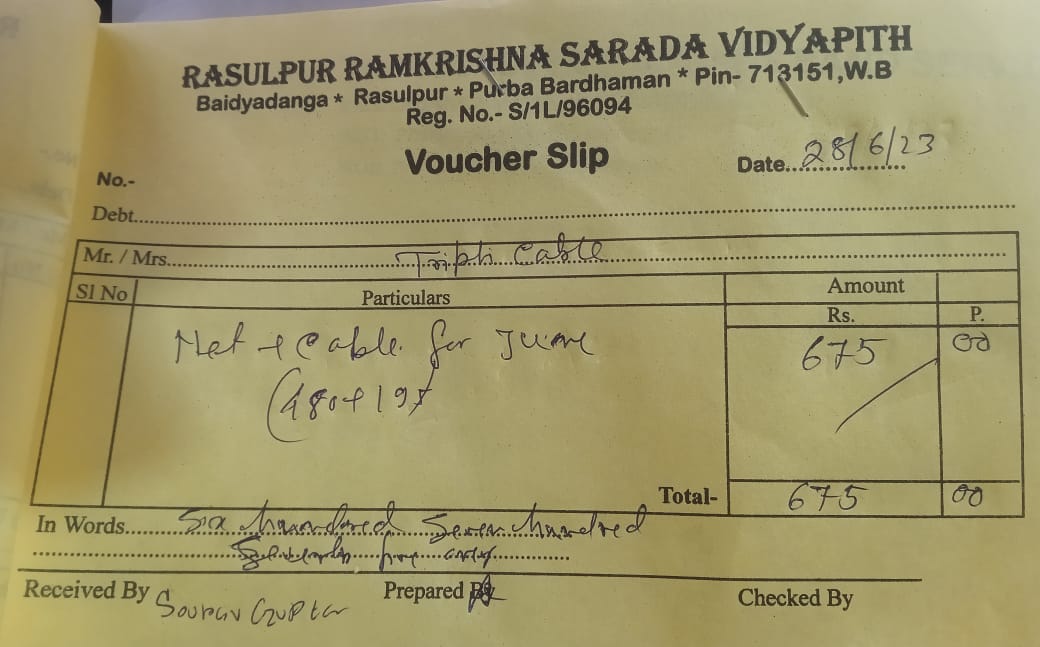 RASULPUR RAMKRISHNA SARADA VIDYAPITH
Baidyadanga * Rasulpur * Purba Bardhaman * Pin- 713151,W.B
Reg. No.- S/1L/96094
Voucher Slip
Date...28/6/23
No.-
Debt
Mr. / Mrs. Cable
Sl No Particulars Amount
Rs. P.
Net + Cable for June 675 00
(480+195
Total- 675 00
In Words Six hundred Seven hundred
five only
Received By Sourav Gupta Prepared By Checked By